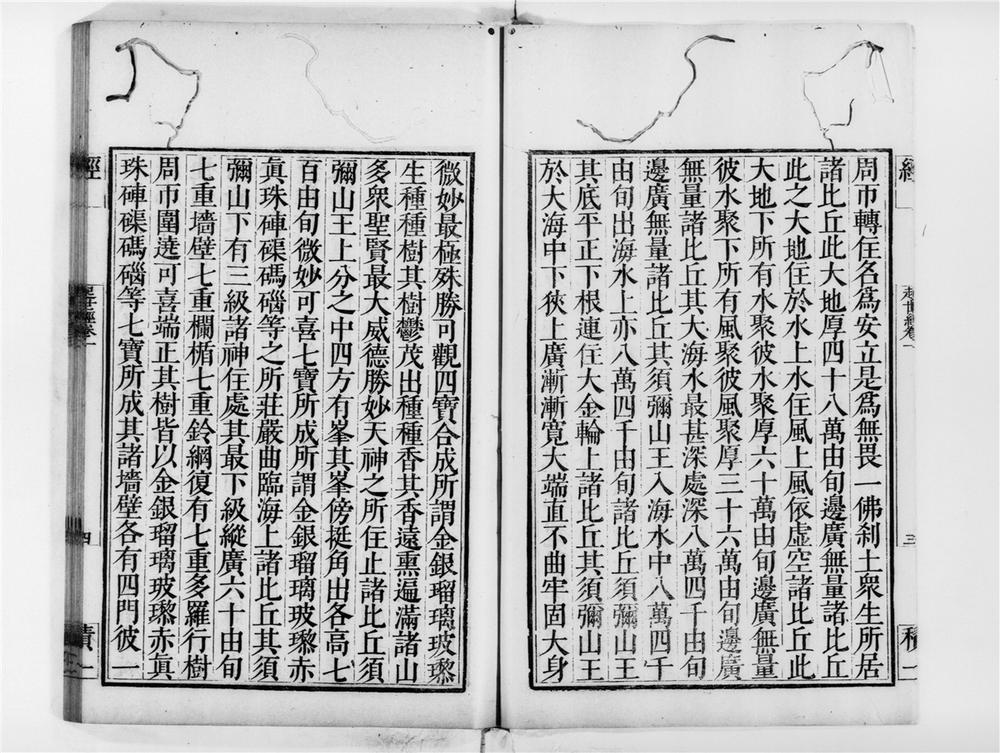 周帀轉住名爲安立是爲無畏一佛刹土衆生所居
諸比丘此大地厚四十八萬由旬邊廣無量諸比丘
此之大地住於水上水住風上風依虛空諸比丘此
大地下所有水聚彼水聚厚六十萬由旬邊廣無量
彼水聚下所有風聚彼風聚厚三十六萬由旬邊廣
無量諸比丘其大海水最甚深處深八萬四千由旬
邊廣無量諸比丘其須彌山王入海水中八萬四千
由旬出海水上亦八萬四千由旬諸比丘須彌山王
其底平正下根連住大金輪上諸比丘其須彌山王
於大海中下狹上廣漸漸寬大端直不曲牢固大身
微妙最極殊勝可觀四寶合成所謂金銀瑠璃玻瓈
生種種樹其樹鬱茂出種種香其香遠熏遍滿諸山
多衆聖賢最大威德勝妙天神之所住止諸比丘須
彌山王上分之中四方有峯其峯傍挺角出各高七
百由旬微妙可喜七寶所成所謂金銀瑠璃玻瓈赤
眞珠硨磲碼碯等之所莊嚴曲臨海上諸比丘其須
彌山下有三級諸神住處其最下級縱廣六十由旬
七重墻壁七重欄楯七重鈴網復有七重多羅行樹
周帀圍遶可喜端正其樹皆以金銀瑠璃玻瓈赤眞
珠硨磲碼碯等七寶所成其諸墻壁各有四門彼一
經
起世經卷一
四